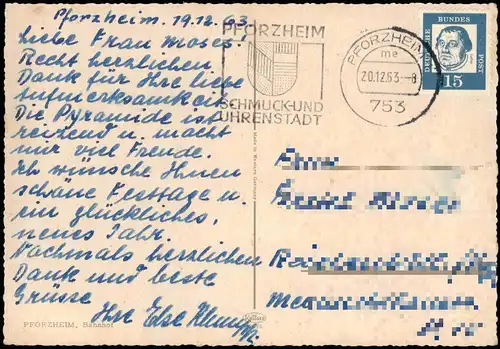 Pforzheim. 19.12.63.
Liebe Frau Moses!
Recht herzlichen
Dank für Ihre liebe
Aufmerksamkeit.
Die Pyramide ist
reizend u. macht
mir viel Freude.
Ich wünsche Ihnen
schöne Festtage u.
ein glückliches,
neues Jahr.
Nochmals herzlichen
Dank und beste
Grüsse
Ihre Else
PFORZHEIM, Bahnhof
PFORZHEIM
SCHMUCK-UND
UHRENSTADT
PFORZHEIM
me
20.12.63-8
753
DEUTSCHE BUNDES POST
15